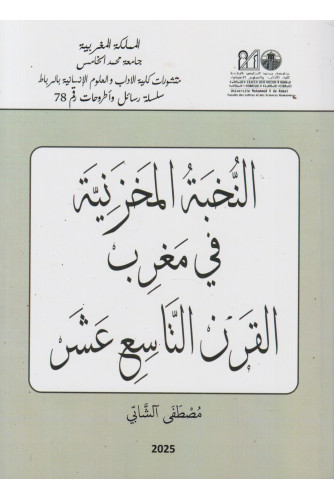 المملكة المغربية
جامعة محمد الخامس
منشورات كلية الآداب والعلوم الإنسانية بالرباط
سلسلة رسائل وأطروحات رقم 78
Université Mohammed V de Rabat
النُّخبَةُ المَخزَنِيَّة
في مَغرِب
القَرن التَّاسِع عَشَر
مُصْطَفَى الشَّابِّي
2025